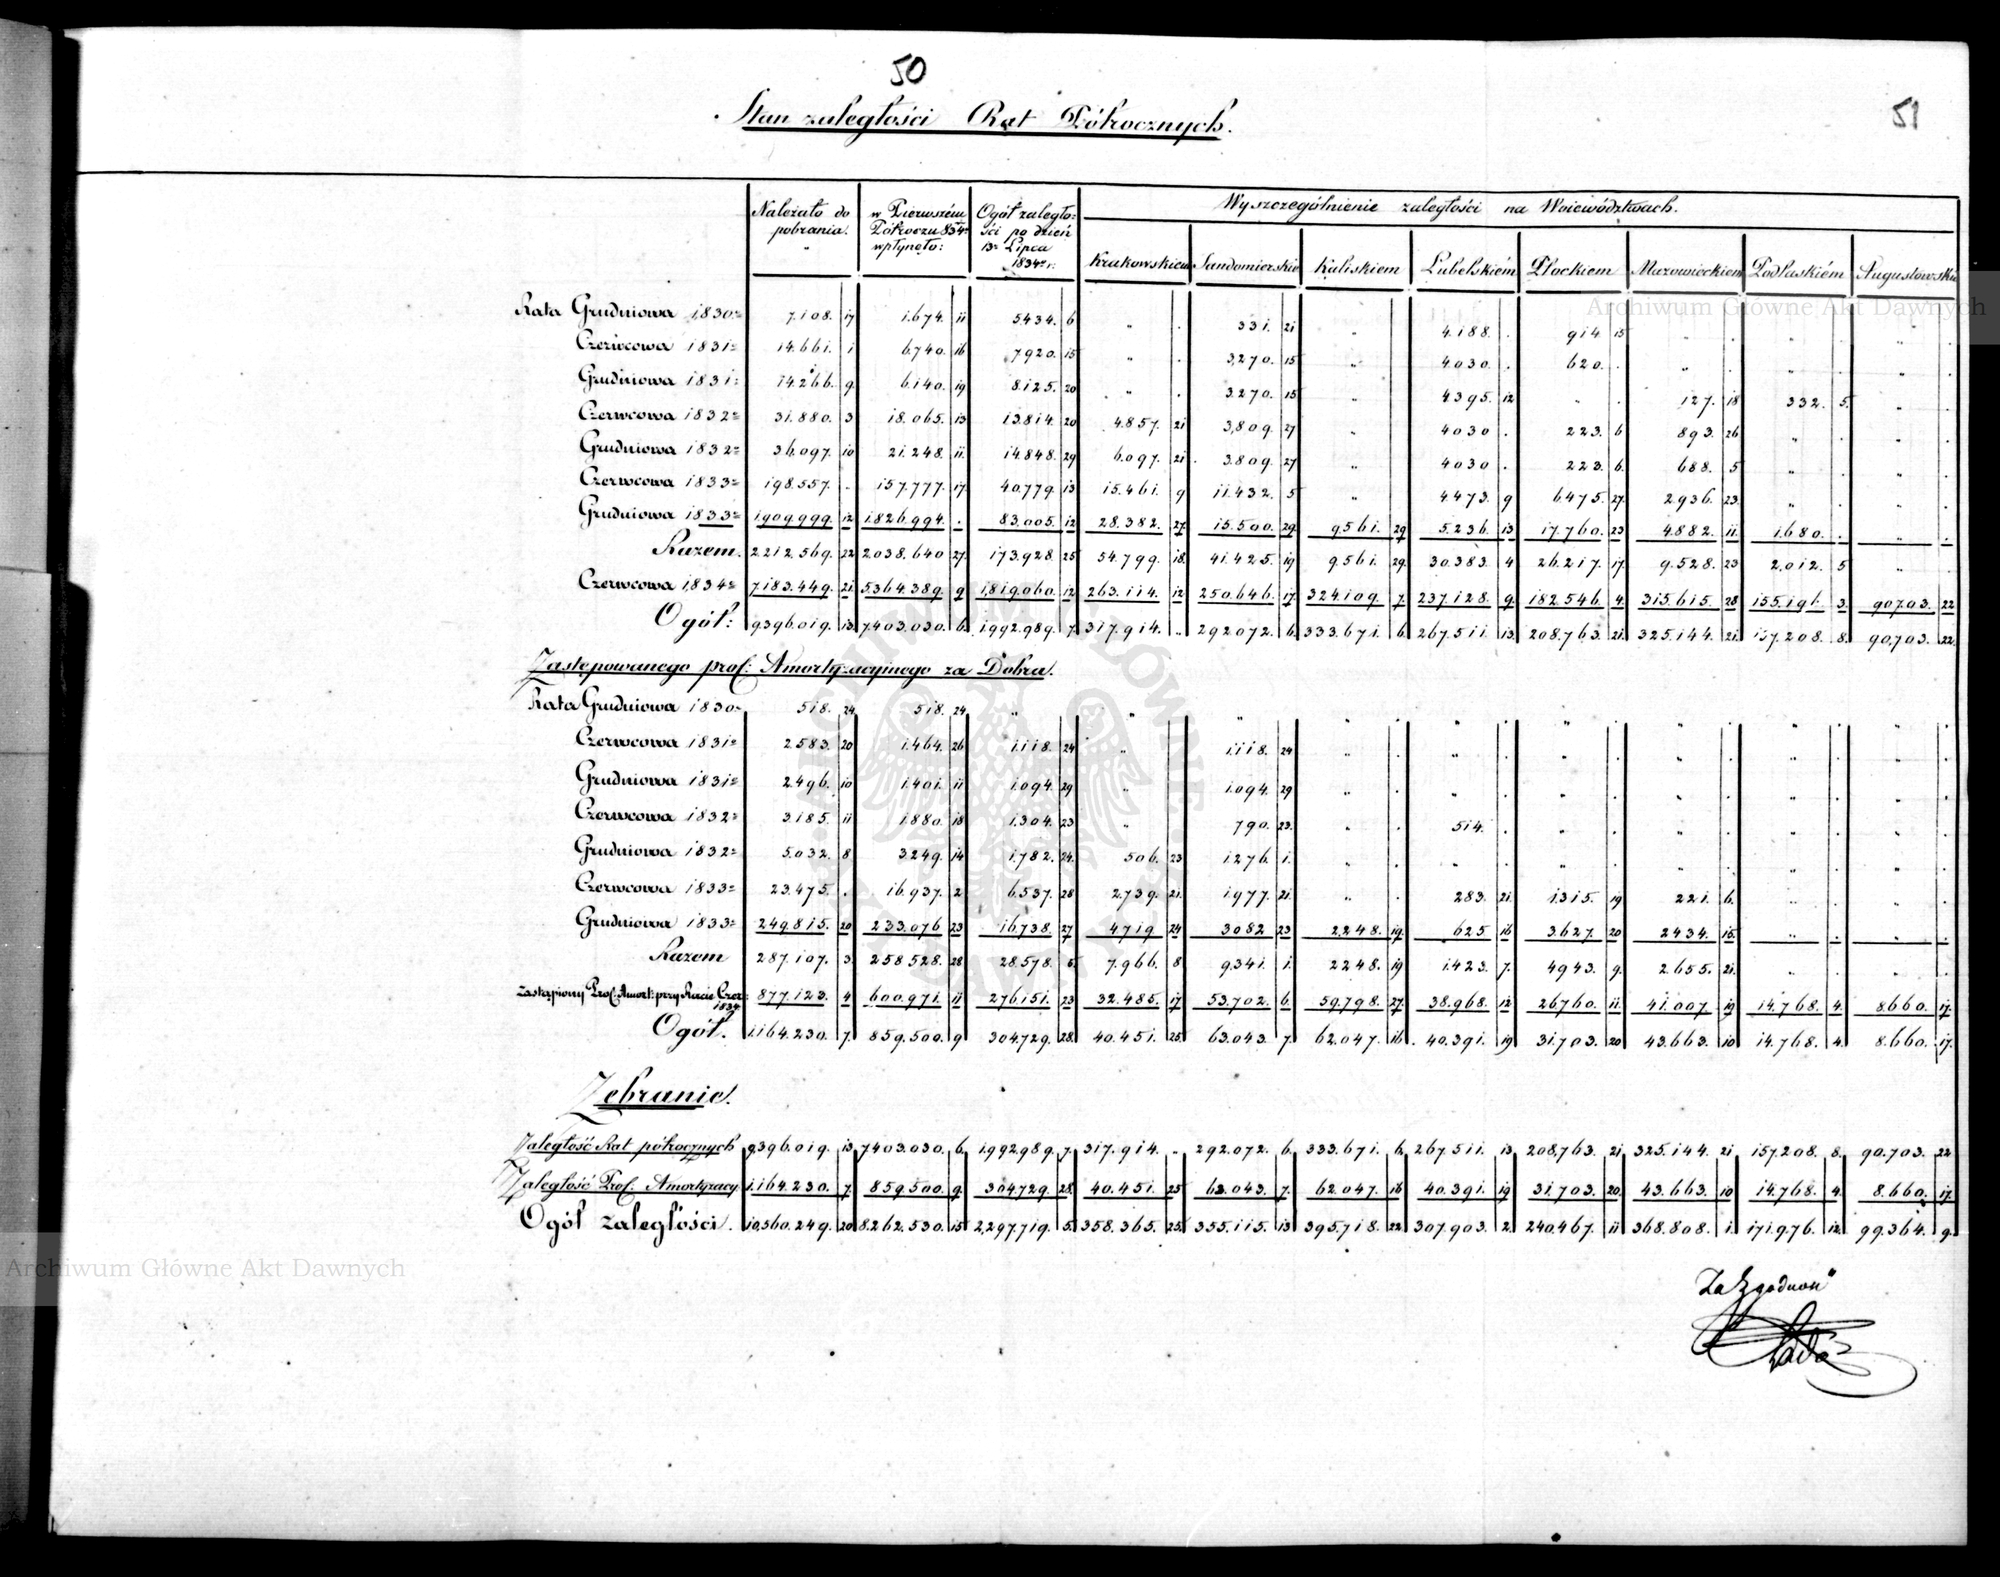 50
51
Stan zaległości Rat Półrocznych.
Należało do pobrania. w Pierwszém Półroczu 834 wpłynęło: Ogół zaległości po dzień 13 Lipca 1834 r. Wyszczególnienie zaległości na Woiewództwach.
Krakowskiem Sandomierskie Kaliskiem Lubelskiém Płockiem Mazowieckiem Podlaskiém Augustowskie
Rata Grudniowa 1830 7.108. 17 1.674. 11 5434. 6 " . 331. 21 " 4.188. . 914 15 " . " . " .
Czerwcowa 1831 14.661. 1 6.740. 16 7920. 15 " . 3,270. 15 " 4030. . 620. . " . " . " .
Grudniowa 1831 14.266. 9 6.140. 19 8.125. 20 " . 3.270. 15 " 4395. 12 " . 127. 18 332. 5. " .
Czerwcowa 1832 31.880. 3 18.065. 13 13.814. 20 4.857. 21 3,809. 27 " 4030 . 223. 6 893. 26 " . " .
Grudniowa 1832 36.097. 10 21.248. 11. 14.848. 29 6.097. 21. 3.809. 27 " 4030 . 223. 6. 688. 5 " . " .
Czerwcowa 1833 198.557. . 157.777. 17. 40.779. 13 15.461. 9 11.432. 5 " 4473. 9 6475. 27. 2.936. 23. " . " .
Grudniowa 1833 1.909.999. 12 1.826.994. . 83.005. 12 28.382. 27. 15.500. 29. 9.561. 29 5.236. 13 17.760. 23 4.882. 11. 1.680. . " .
Razem. 2.212.569. 22 2.038.640 27. 173.928. 25 54.799. 18. 41.425. 19 9.561. 29. 30.383. 4 26.217. 17. 9.528. 23 2,012. 5 " .
Czerwcowa 1834 7.183.449. 21. 5.364.389. 9 1,819.060. 12 263.114. 12 250.646. 17. 324.109. 7. 237.128. 9. 182.546. 4. 315.615. 28 155.196. 3. 90.703. 22
Ogół: 9.396.019. 13. 7.403.030. 6. 1.992.989. 7. 317.914. " 292.072. 6. 333.671. 6. 267.511. 13. 208.763. 21. 325.144. 21. 157.208. 8. 90,703. 22.
Zastępowanego prof: Amortyzacyjnego za Dobra.
Rata Grudniowa 1830 518. 24 518. 24 " " " . " . " . " . " . " . " .
Czerwcowa 1831 2.583. 20 1.464. 26 1.118. 24 " 1.118. 24 " . " . " . " . " . " .
Grudniowa 1831 2.496. 10 1.401. 11 1.094. 29 " 1.094. 29 " . " . " . " . " . " .
Czerwcowa 1832 3.185. 11 1.880. 18 1.304. 23 " 790. 23. " . 514. . " . " . " . " .
Grudniowa 1832 5.032. 8 3.249. 14 1.782. 24. 506. 23 1.276. 1. " . " . " . " . " . " .
Czerwcowa 1833 23.475. . 16.937. 2 6.537. 28 2.739. 21. 1.977. 21. " . 283. 21. 1.315. 19 221. 6. " . " .
Grudniowa 1833 249.815. 20 233.076 23 16.738. 27 4719 24 3082 23 2.248. 19. 625 16 3.627. 20 2434. 15. " . " .
Razem 287.107. 3. 258.528. 28 28.578. 5. 7.966. 8 9.341. 1. 2248. 19 1.423. 7. 4943. 9. 2.655. 21. " . " .
Zastąpiony Prof: Amort: przy Racie Czer: 1834 877.123. 4 600.971. 11 276.151. 23 32.485. 17 53.702. 6. 59.798. 27. 38.968. 12 26.760. 11. 41.007 19 14.768. 4. 8.660. 17.
Ogół. 1.164.230. 7. 859.500. 9 304.729. 28. 40.451. 25. 63.043. 7. 62.047. 16 40.391. 19 31.703. 20 43.663. 10 14.768. 4. 8.660. 17.
Zebranie.
Zaległość Rat półrocznych 9.396.019. 13 7.403.030. 6. 1.992.989. 7. 317.914. " 292.072. 6. 333.671. 6. 267.511. 13 208.763. 21 325.144. 21 157.208. 8. 90.703. 22
Zaległość Prof: Amortyzacy: 1.164.230. 7. 859.500. 9. 304.729. 28. 40.451. 25 63.043. 7. 62.047. 16 40.391. 19 31.703. 20. 43.663. 10 14.768. 4. 8.660. 17.
Ogół zaległości. 10,560.249. 20 8.262.530. 15 2,297.719. 5 358.365. 25. 355.115. 13 395.718. 22 307.903. 2. 240.467. 11 368.808. 1. 171.976. 12. 99.364. 9.
Za Zgodność
Archiwum Główne Akt Dawnych
Archiwum Główne Akt Dawnych